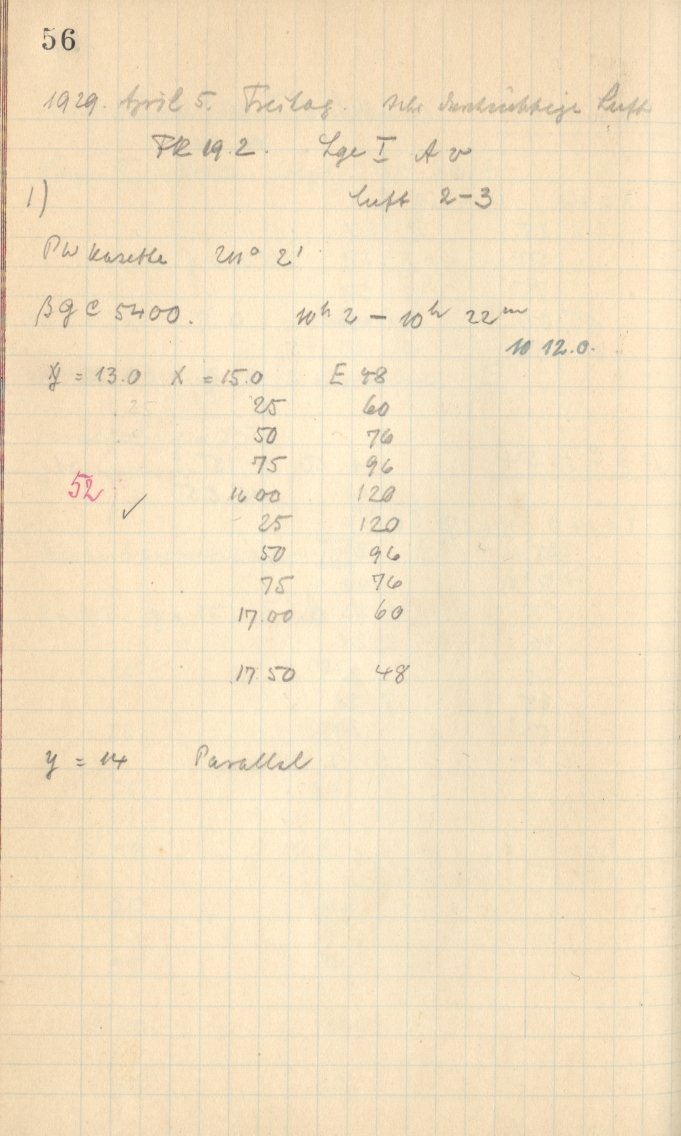 56
1929. April 5. Freitag. sehr durchsichtige Luft
FR 19.2. Lge I A v
1) Luft 2-3
PW Kasette 211° 2'
βGC 5400. 10h 2 - 10h 22m
10 12.0.
y = 13.0 X = 15.0 E 48
25 60
50 76
75 96
52 16 00 120
✓ 25 120
50 96
75 76
17.00 60
17.50 48
y = 14 Parallel